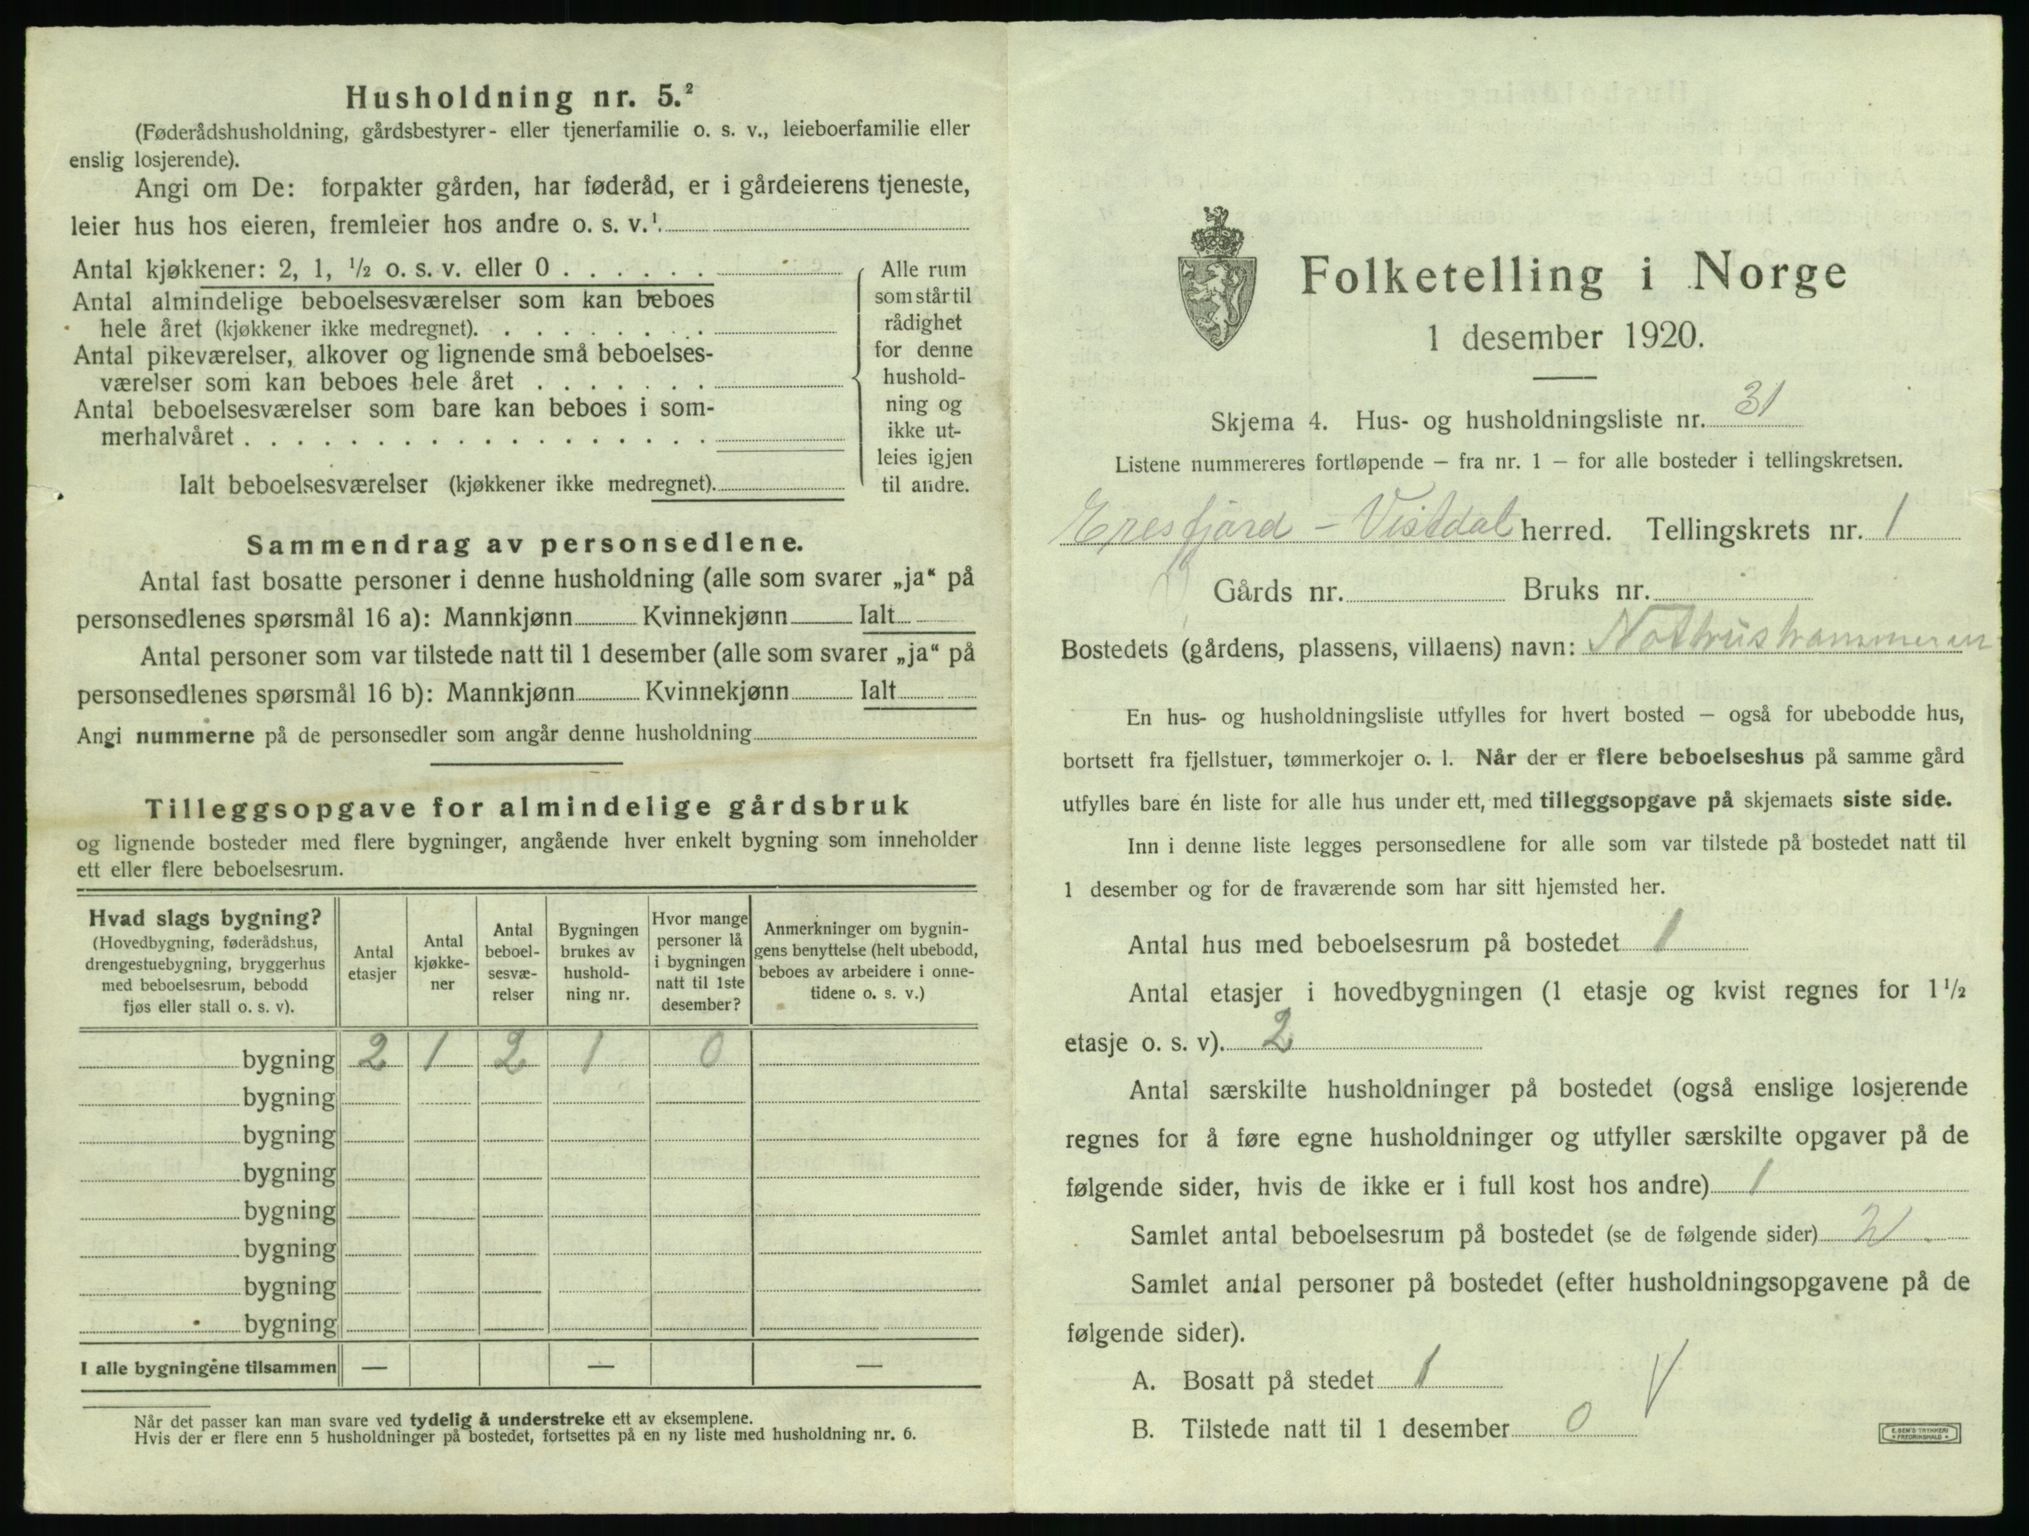 Husholdning nr. 5.²
(Føderådshusholdning, gårdsbestyrer- eller tjenerfamilie o. s. v., leieboerfamilie eller
enslig losjerende).
Angi om De: forpakter gården, har føderåd, er i gårdeierens tjeneste,
leier hus hos eieren, fremleier hos andre o. s. v.¹.
Antal kjøkkener: 2, 1, ½ o. s. v. eller 0 . . . . . .
Antal almindelige beboelsesværelser som kan beboes
hele året (kjøkkener ikke medregnet). . . . . . . . .
Antal pikeværelser, alkover og lignende små beboelses-
værelser som kan beboes hele året . . . . . . .
Antal beboelsesværelser som bare kan beboes i som-
merhalvåret . . . . . . . . . . . . . . . . . .
Ialt beboelsesværelser (kjøkkener ikke medregnet).
Alle rum
som står til
rådighet
for denne
hushold-
ning og
ikke ut-
leies igjen
til andre.
Sammendrag av personsedlene.
Antal fast bosatte personer i denne husholdning (alle som svarer „ja“ på
personsedlenes spørsmål 16 a): Mannkjønn Kvinnekjønn Ialt
Antal personer som var tilstede natt til 1 desember (alle som svarer „ja“ på
personsedlenes spørsmål 16 b): Mannkjønn Kvinnekjønn Ialt
Angi nummerne på de personsedler som angår denne husholdning
Tilleggsopgave for almindelige gårdsbruk
og lignende bosteder med flere bygninger, angående hver enkelt bygning som inneholder
ett eller flere beboelsesrum.
Hvad slags bygning?
(Hovedbygning, føderådshus,
drengestuebygning, bryggerhus
med beboelsesrum, bebodd
fjøs eller stall o. s. v).
Antal
etasjer
Antal
kjøkke-
ner
Antal
beboel-
sesvæ-
relser
Bygningen
brukes av
hushold-
ning nr.
Hvor mange
personer lå
i bygningen
natt til 1ste
desember?
Anmerkninger om bygnin-
gens benyttelse (helt ubebodd,
beboes av arbeidere i onne-
tidene o. s. v.)
bygning 2 1 2 1 0
bygning
bygning
bygning
bygning
bygning
bygning
bygning
I alle bygningene tilsammen — — —
Når det passer kan man svare ved tydelig å understreke ett av eksemplene.
Hvis der er flere enn 5 husholdninger på bostedet, fortsettes på en ny liste med husholdning nr. 6.
Folketelling i Norge
1 desember 1920.
Skjema 4. Hus- og husholdningsliste nr. 31
Listene nummereres fortløpende – fra nr. 1 – for alle bosteder i tellingskretsen.
Eresfjord – Vistdal herred. Tellingskrets nr. 1
Gårds nr. Bruks nr.
Bostedets (gårdens, plassens, villaens) navn:
En hus- og husholdningsliste utfylles for hvert bosted – også for ubebodde hus,
bortsett fra fjellstuer, tømmerkojer o. l. Når der er flere beboelseshus på samme gård
utfylles bare én liste for alle hus under ett, med tilleggsopgave på skjemaets siste side.
Inn i denne liste legges personsedlene for alle som var tilstede på bostedet natt til
1 desember og for de fraværende som har sitt hjemsted her.
Antal hus med beboelsesrum på bostedet 1
Antal etasjer i hovedbygningen (1 etasje og kvist regnes for 1½
etasje o. s. v). 2
Antal særskilte husholdninger på bostedet (også enslige losjerende
regnes for å føre egne husholdninger og utfyller særskilte opgaver på de
følgende sider, hvis de ikke er i full kost hos andre) 1
Samlet antal beboelsesrum på bostedet (se de følgende sider) 2
Samlet antal personer på bostedet (efter husholdningsopgavene på de
følgende sider).
A. Bosatt på stedet 1
B. Tilstede natt til 1 desember 0
E. SEM'S TRYKKERI
FREDRIKSHALD